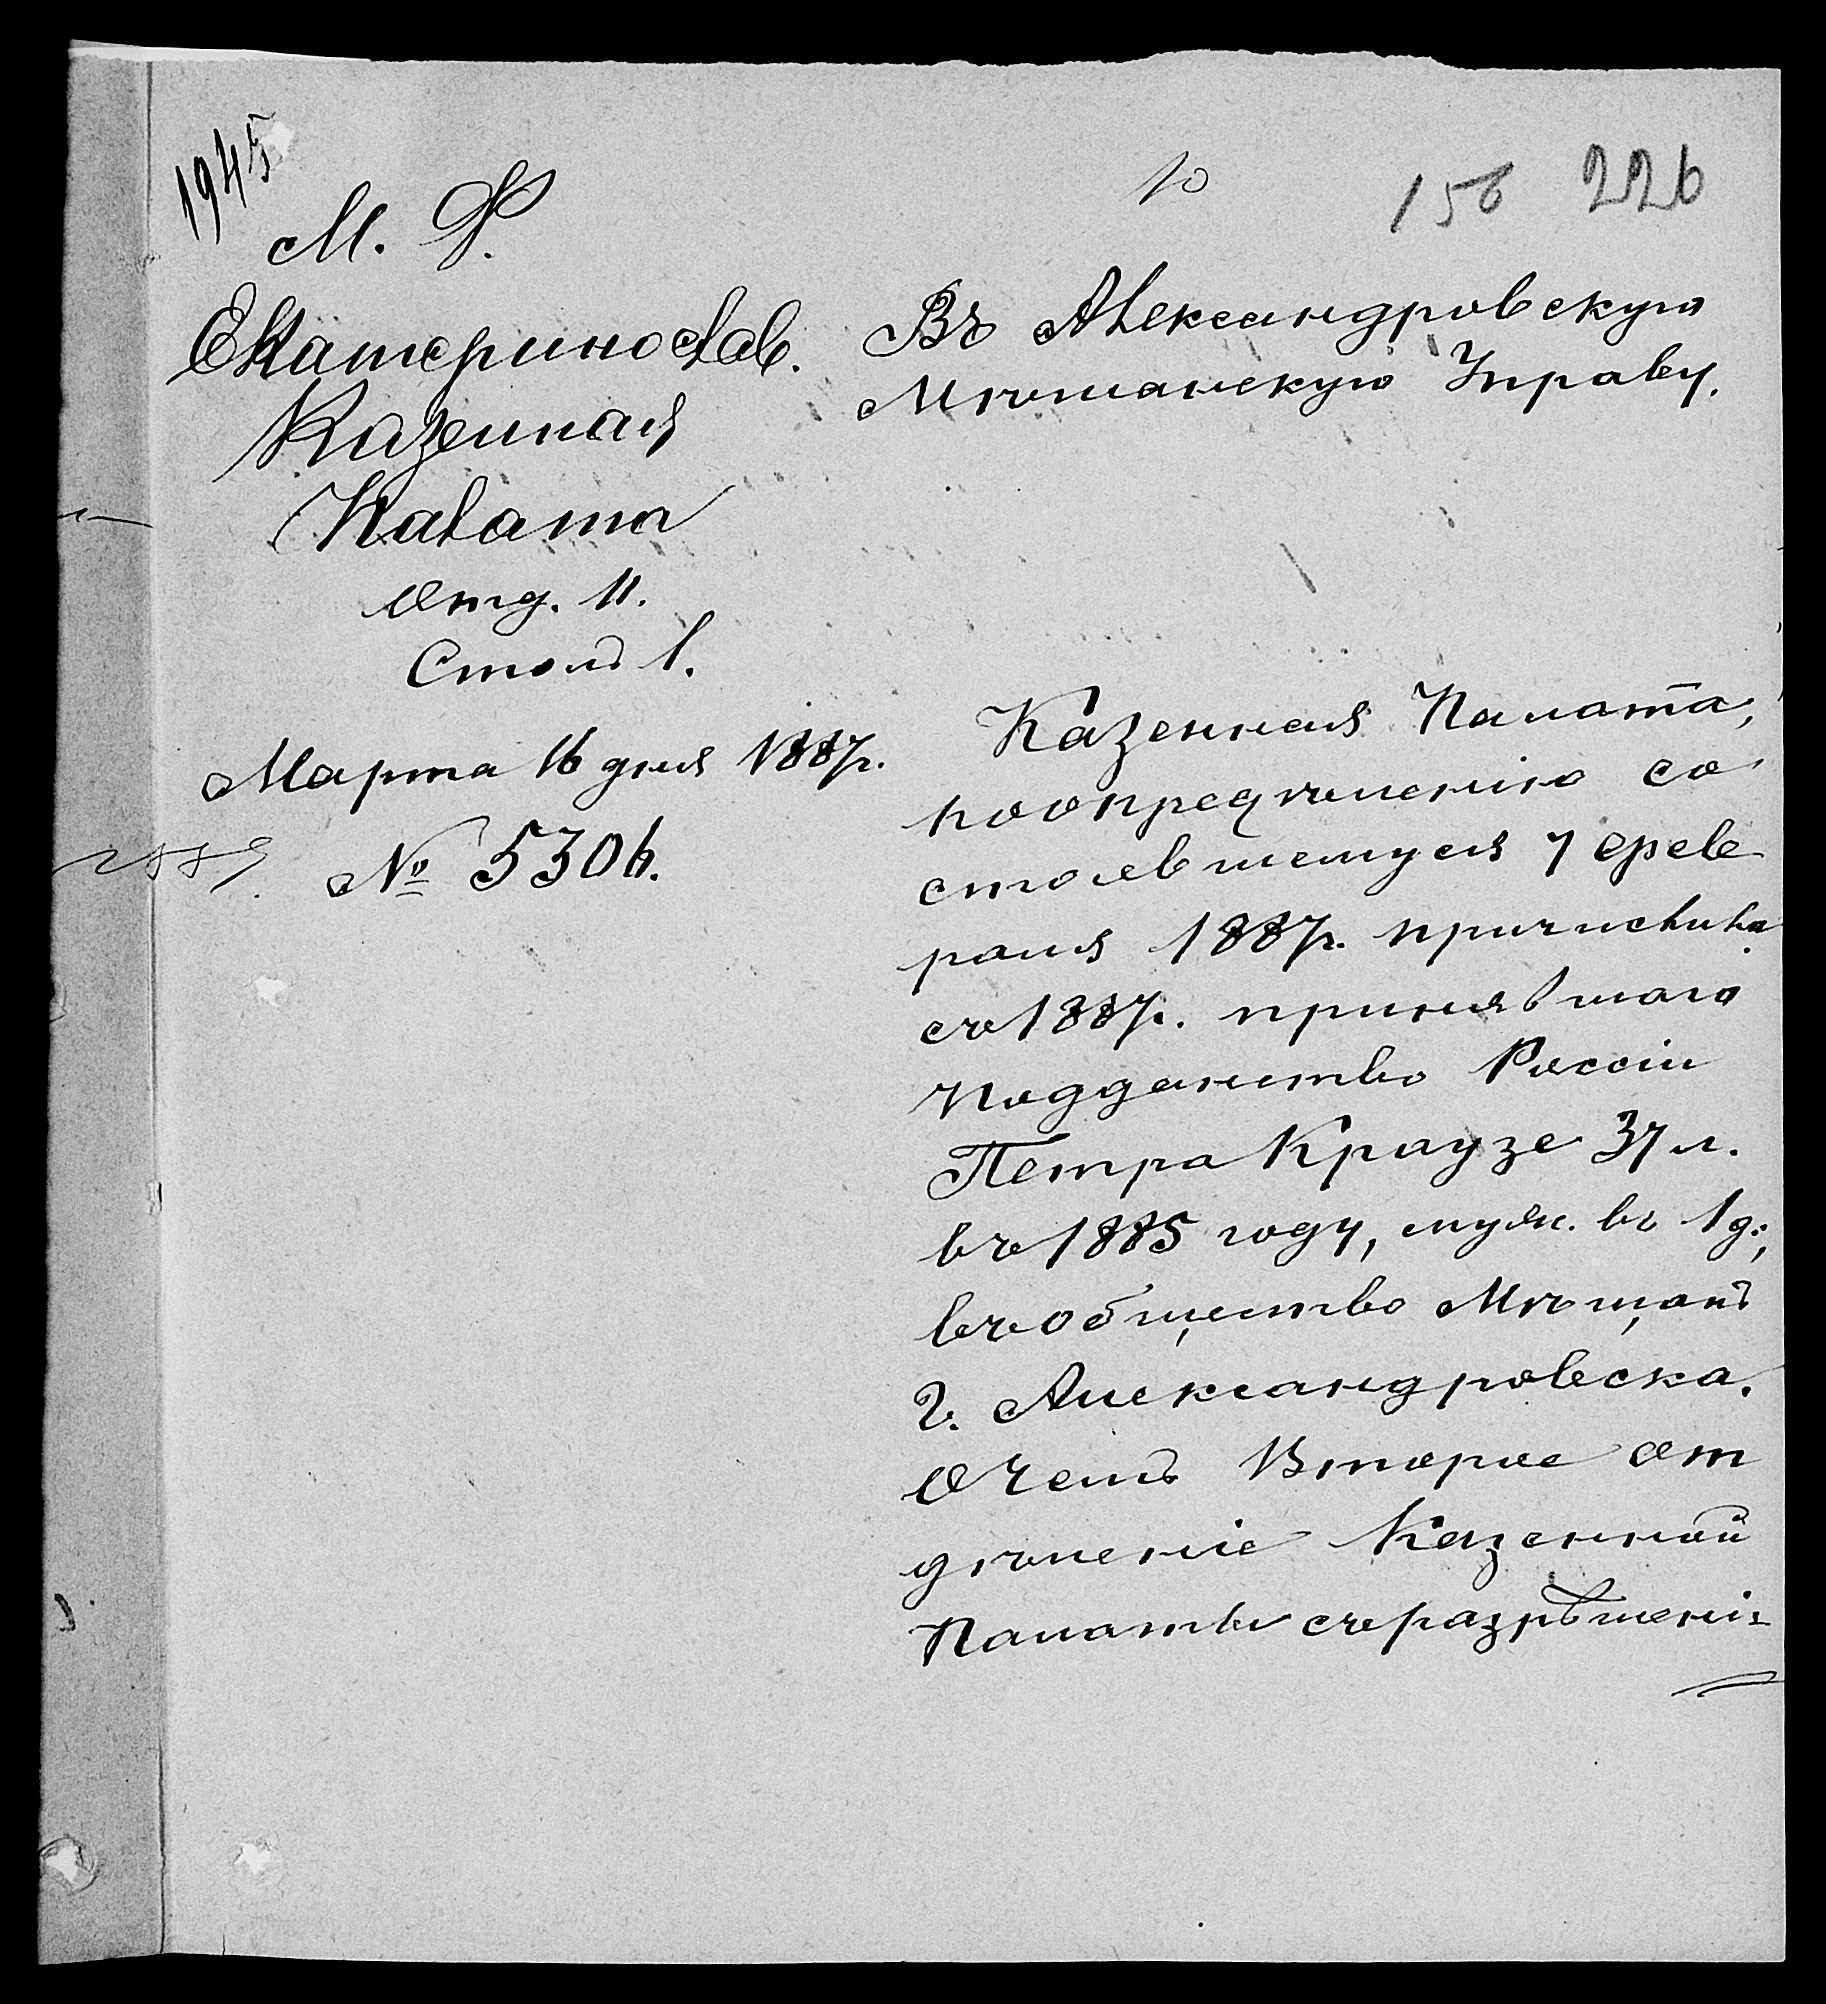 1945
156 226
М. Ф.
Екатеринослав.
Казенная
Палата
Отд. II.
Столъ 1.
Марта 16 дня 1887 г.
№ 5306.
Въ Александровскую
Мѣщанскую Управу.
Казенная Палата,
по опредѣленію со
стоявшемуся 7 февра
раля 1887 г. причислила
съ 1887 г. принявшаго
подданство Россіи
Петра Краузе 37 л.
въ 1885 году, муж. въ 1 д.,
въ общество Мѣщанъ
г. Александровска.
О чемъ Второе От
дѣленіе Казенной
Палаты съ разрѣшені-